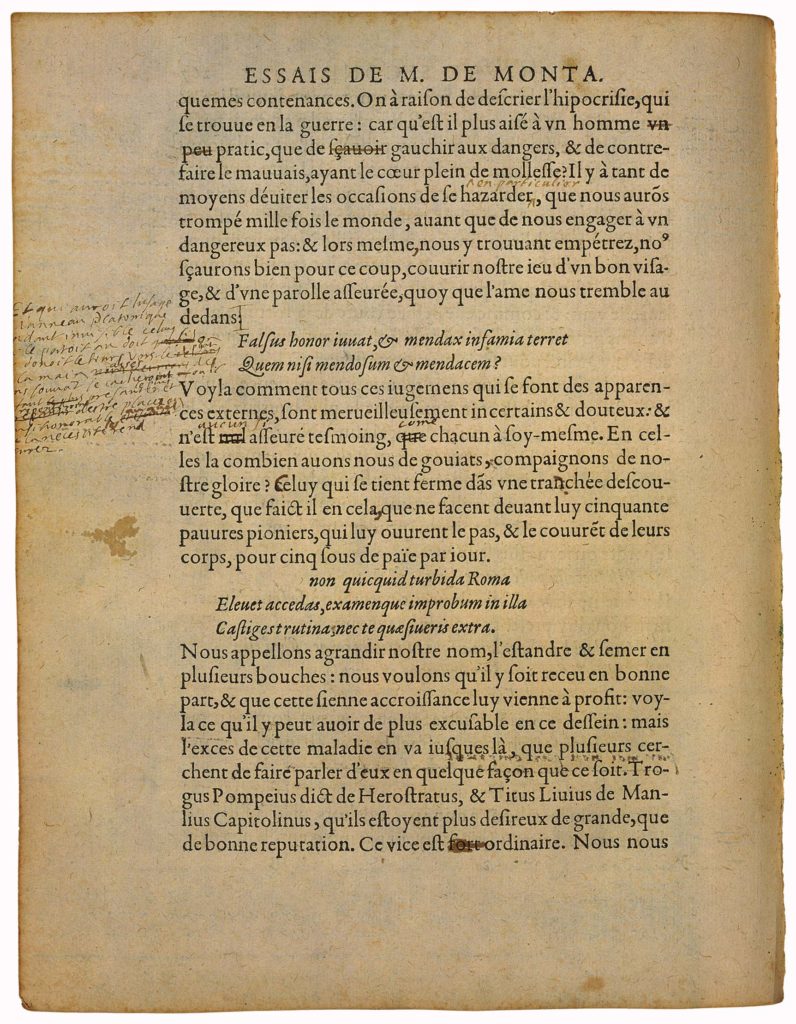 ESSAIS DE M. DE MONTA.
quemes contenances. On à raison de descrier l'hipocrisie, qui
se trouue en la guerre : car qu'est il plus aisé à vn homme vn
peu pratic, que de sçauoir gauchir aux dangers, & de contre-
faire le mauuais, ayant le cœur plein de mollesse? Il y à tant de
moyens déuiter les occasions de se hazarder, que nous aurõs
en particulier
trompé mille fois le monde, auant que de nous engager à vn
dangereux pas: & lors mesme, nous y trouuant empétrez, noꝰ
sçaurons bien pour ce coup, couurir nostre ieu d'vn bon visa-
ge, & d'vne parolle asseurée, quoy que l'ame nous tremble au
dedans
Et qui auroit l'usage
l'anneau Platonique
Falsus honor iuuat, & mendax infamia terret
Quem nisi mendosum & mendacem?
Voyla comment tous ces iugemens qui se font des apparen-
ces externes, sont merueilleusement incertains & douteux: &
aucun si come
n'est nul asseuré tesmoing, que chacun à soy-mesme. En cel-
les la combien auons nous de gouiats, compaignons de no-
stre gloire? Celuy qui se tient ferme dãs vne tranchée descou-
uerte, que faict il en cela, que ne facent deuant luy cinquante
pauures pioniers, qui luy ouurent le pas, & le couurẽt de leurs
corps, pour cinq sous de païe par iour.
non quicquid turbida Roma
Eleuet accedas, examenque improbum in illa
Castiges trutina: nec te quæsiueris extra.
Nous appellons agrandir nostre nom, l'estandre & semer en
plusieurs bouches : nous voulons qu'il y soit receu en bonne
part, & que cette sienne accroissance luy vienne à profit: voy-
la ce qu'il y peut auoir de plus excusable en ce dessein : mais
l'exces de cette maladie en va iusques là, que plusieurs cer-
chent de faire parler d'eux en quelque façon que ce soit. Tro-
gus Pompeius dict de Herostratus, & Titus Liuius de Man-
lius Capitolinus, qu'ils estoyent plus desireux de grande, que
de bonne reputation. Ce vice est fort ordinaire. Nous nous